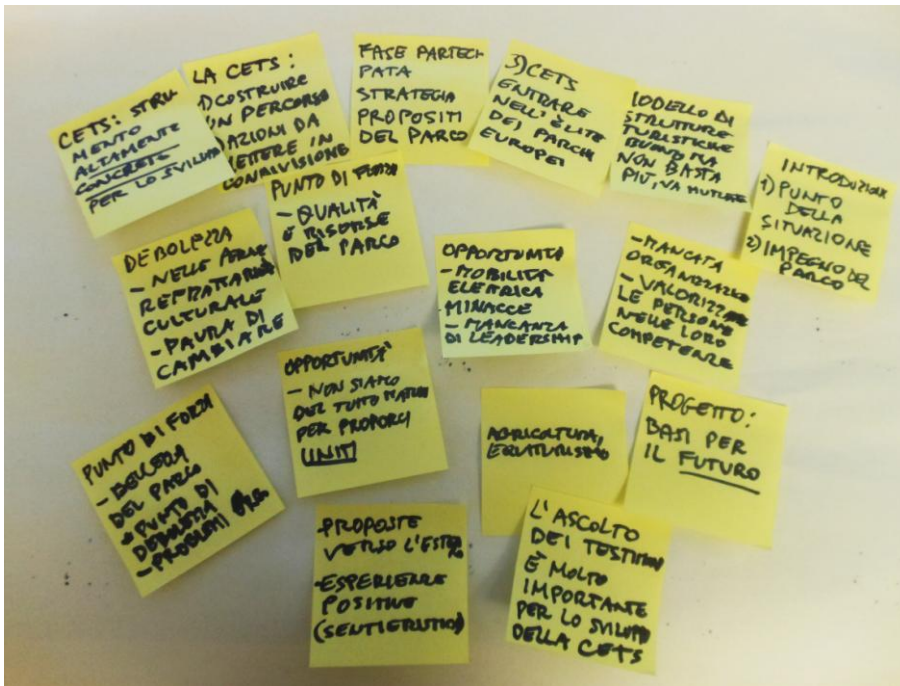 CETS: STRU-
MENTO
ALTAMENTE
CONCRETE
PER LO SVILUPPO
LA CETS:
1) COSTRUIRE
UN PERCORSO
DI AZIONI DA
METTERE IN
CONDIVISIONE
FASE PARTECI-
PATA
STRATEGIA
PROPOSITI
DEL PARCO
3) CETS
ENTRARE
NELL'ÉLITE
DEI PARCHI
EUROPEI
MODELLO DI
STRUTTURE
TURISTICHE
BUONO MA
NON BASTA
PIÙ, VA
INTRODUZIONE
1) PUNTO
DELLA
SITUAZIONE
2) IMPEGNO DEL
PARCO
DEBOLEZZA
- NELLE
CULTURALE
- PAURA DI
CAMBIARE
PUNTO DI FORZA
- QUALITÀ
E RISORSE
DEL PARCO
OPPORTUNITÀ
- MOBILITÀ
ELETTRICA
MINACCE
- MANCANZA
DI LEADERSHIP
- MANCATA
ORGANIZZAZIONE
- VALORIZZARE
LE PERSONE
NELLE LORO
COMPETENZE
PUNTO DI FORZA
- BELLEZZA
DEL PARCO
PUNTO DI
DEBOLEZZA
- PROBLEMI
OPPORTUNITÀ
- NON SIAMO
DEL TUTTO MATURI
PER PROPORCI
UNITI
AGRICOLTURA,
EQUITURISMO
PROGETTO:
BASI PER
IL FUTURO
- PROPOSTE
VERSO L'ESTERO
- ESPERIENZE
POSITIVE
L'ASCOLTO
DEI TESTIMONI
È MOLTO
IMPORTANTE
PER LO SVILUPPO
DELLA CETS